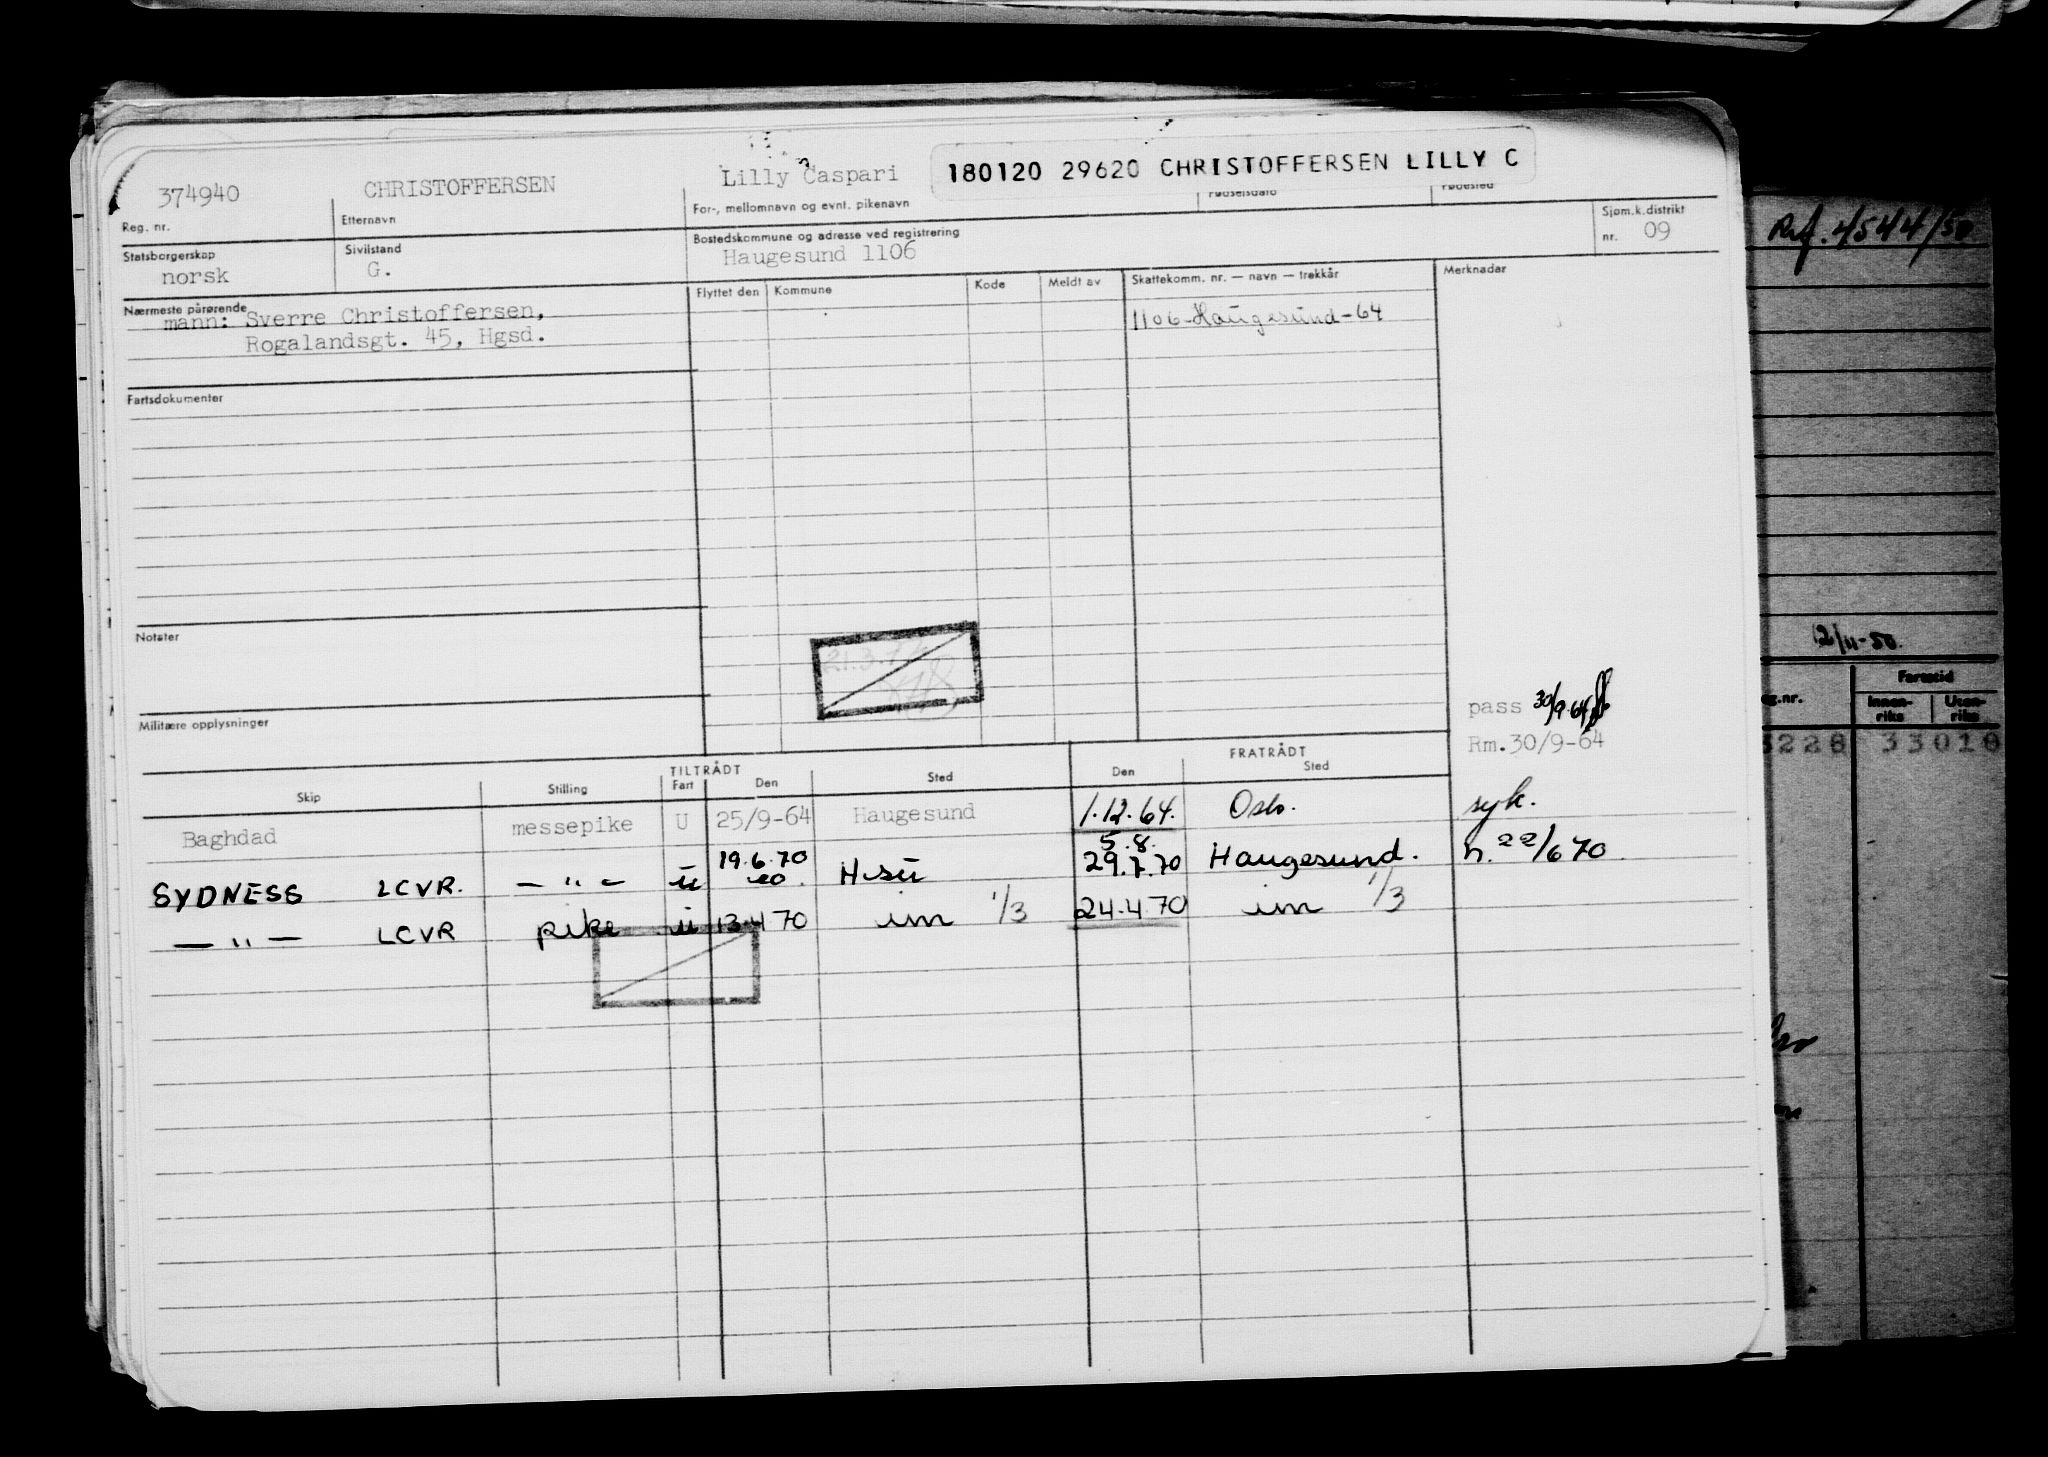 374940 CHRISTOFFERSEN Lilly Caspari 180120 29620 CHRISTOFFERSEN LILLY C
Reg. nr. Etternavn For-, mellomnavn og evnt. pikenavn Fødselsdato Fødested
Statsborgerskap Sivilstand Bostedskommune og adresse ved registrering Sjøm.k.distrikt
norsk G. Haugesund 1106 nr. 09
Nærmeste pårørende Flyttet den Kommune Kode Meldt av Skattekomm. nr. — navn — trekkår Merknader
mann: Sverre Christoffersen, 1106-Haugesund-64
Rogalandsgt. 45, Hgsd.
Fartsdokumenter
Notater
21.3.7
Militære opplysninger
pass 30/9-64
Rm.30/9-64
TILTRÅDT FRATRÅDT
Skip Stilling Fart Den Sted Den Sted
Baghdad messepike U 25/9-64 Haugesund 1.12.64. Oslo. syk.
19.6.70 5.8.
SYDNESS LCVR. — " — u H-su 29.7.70 Haugesund. n. 22/6 70
— " — LCVR pike u 13.4 70 im 1/3 24.4 70 im 1/3
Ref. 4544/50
2/11-50.
Fartstid
eg.nr. Innen-riks Uten-riks
3228 33018